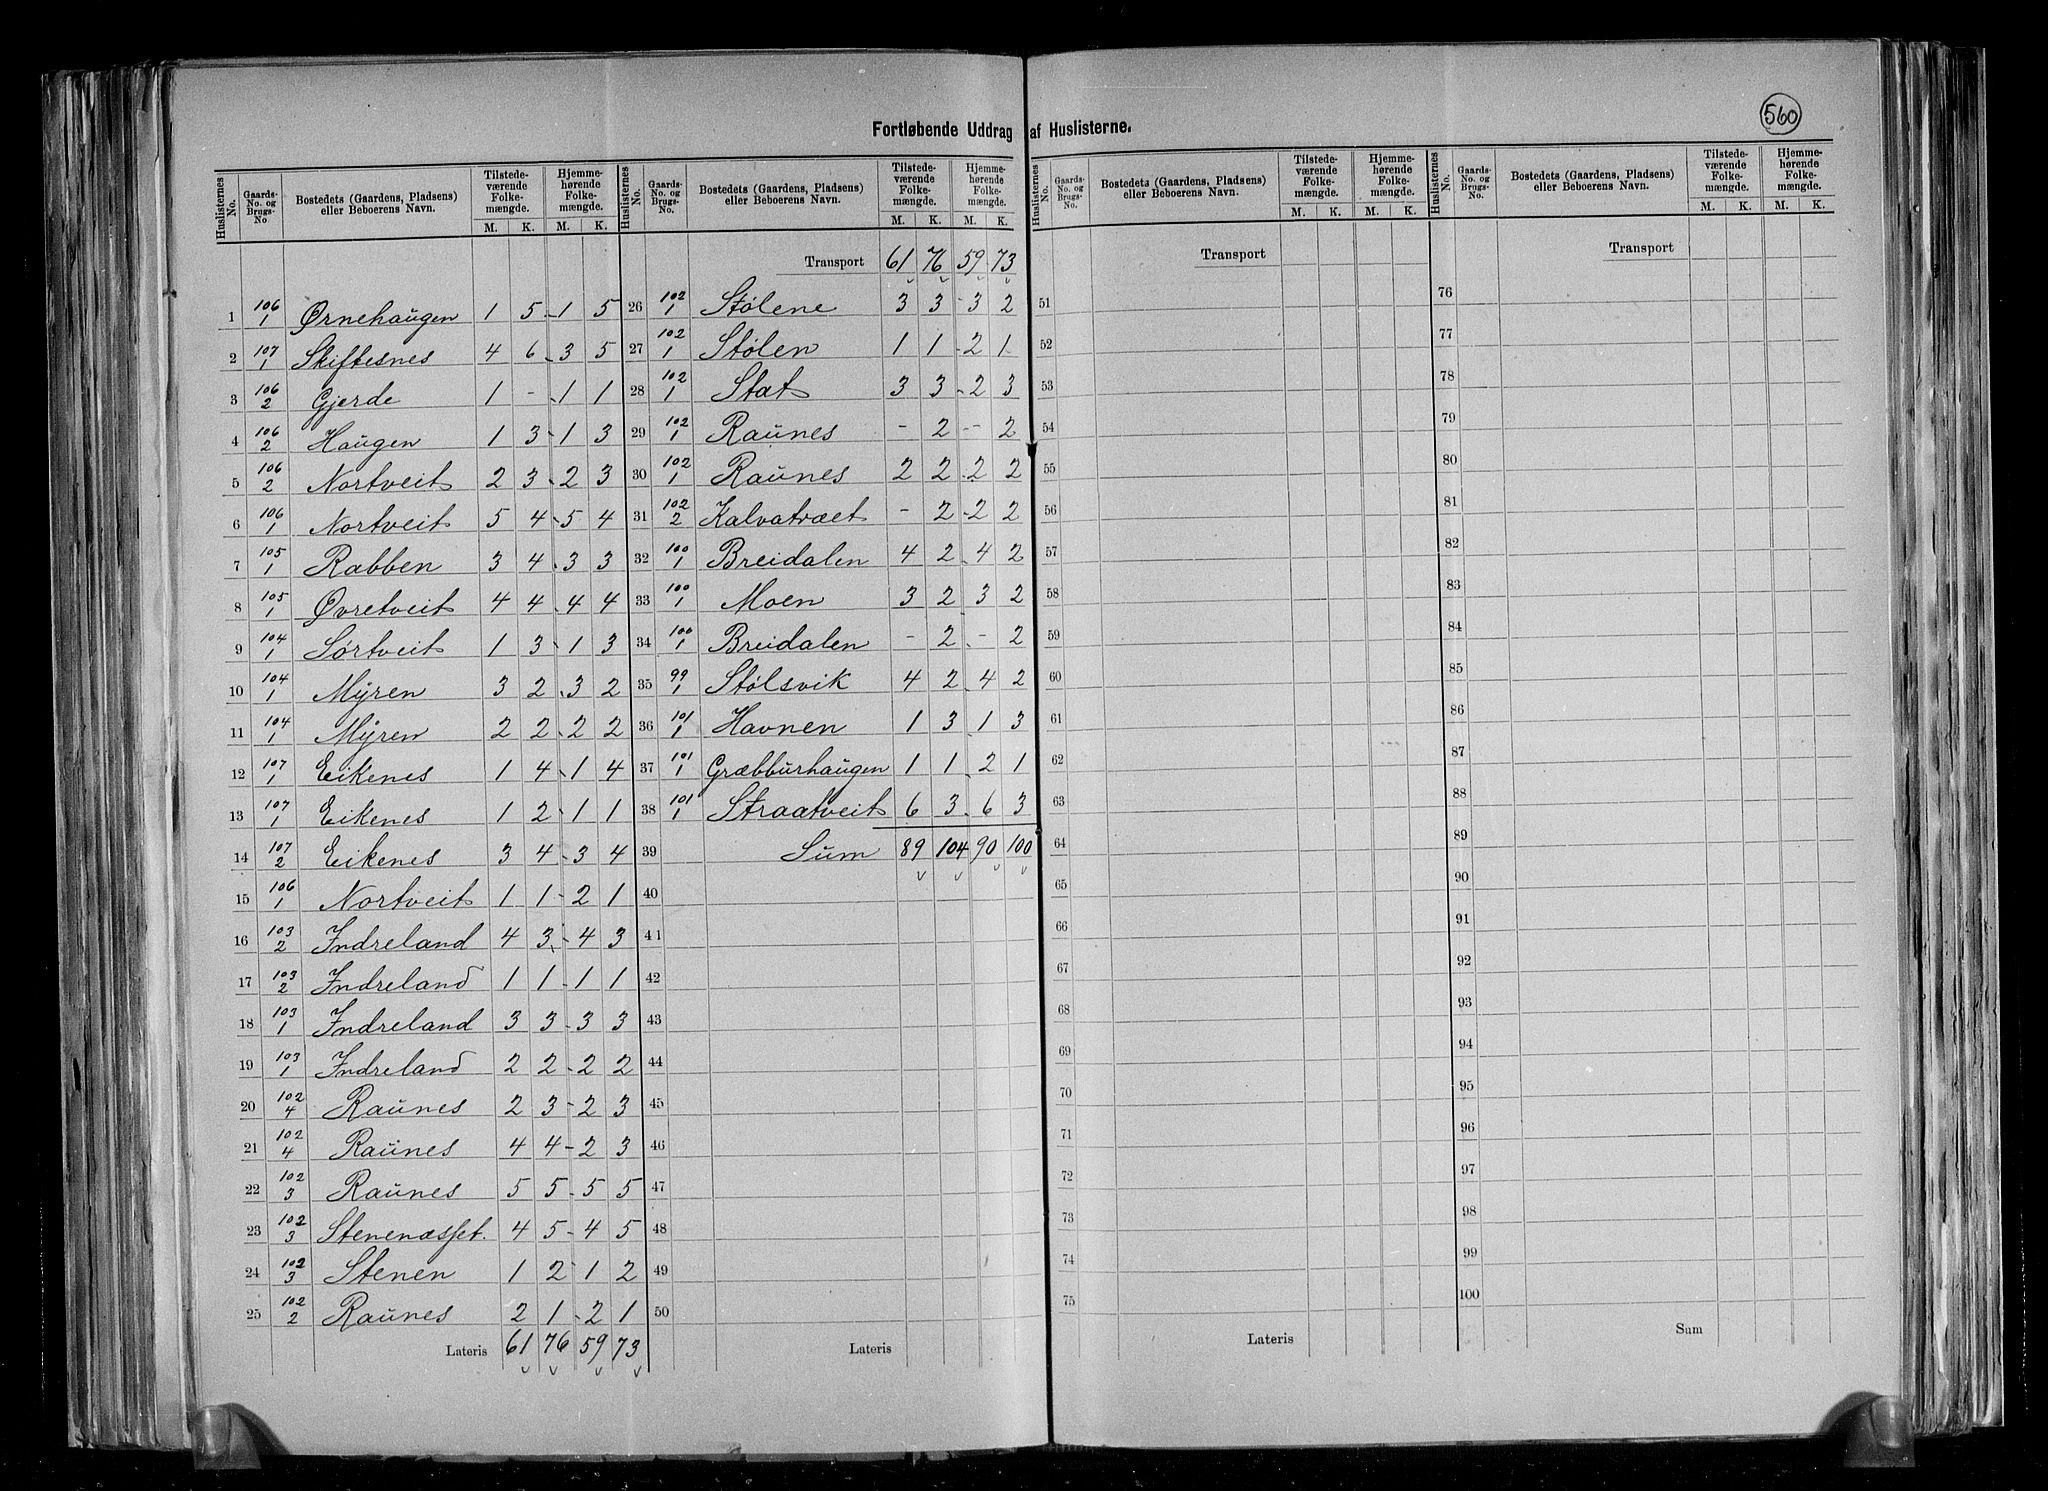 560
Fortløbende Uddrag af Huslisterne.
Huslisternes No. | Gaards-No. og Brugs-No. | Bostedets (Gaardens, Pladsens) eller Beboerens Navn. | Tilstedeværende Folkemængde. M. K. | Hjemmehørende Folkemængde. M. K.
1 106/1 Ørnehaugen 1 5 - 1 5
2 107/1 Skiftesnes 4 6 - 3 5
3 106/2 Gjerde 1 - - 1 1
4 106/2 Haugen 1 3 - 1 3
5 106/2 Nortveit 2 3 - 2 3
6 106/1 Nortveit 5 4 - 5 4
7 105/1 Rabben 3 4 - 3 3
8 105/1 Øvretveit 4 4 - 4 4
9 104/1 Sørtveit 1 3 - 1 3
10 104/1 Myren 3 2 - 3 2
11 104/1 Myren 2 2 - 2 2
12 107/1 Eikenes 1 4 - 1 4
13 107/1 Eikenes 1 2 - 1 1
14 107/2 Eikenes 3 4 - 3 4
15 106/1 Nortveit 1 1 - 2 1
16 103/2 Indreland 4 3 - 4 3
17 103/2 Indreland 1 1 - 1 1
18 103/1 Indreland 3 3 - 3 3
19 103/1 Indreland 2 2 - 2 2
20 102/4 Raunes 2 3 - 2 3
21 102/4 Raunes 4 4 - 2 3
22 102/3 Raunes 5 5 - 5 5
23 102/3 Stenenæsset. 4 5 - 4 5
24 102/3 Stenen 1 2 - 1 2
25 102/2 Raunes 2 1 - 2 1
Lateris 61 76 59 73
Huslisternes No. | Gaards-No. og Brugs-No. | Bostedets (Gaardens, Pladsens) eller Beboerens Navn. | Tilstedeværende Folkemængde. M. K. | Hjemmehørende Folkemængde. M. K.
Transport 61 76 59 73
26 102/1 Stølene 3 3 - 3 2
27 102/1 Stølen 1 1 - 2 1
28 102/1 Stat 3 3 - 2 3
29 102/1 Raunes - 2 - - 2
30 102/1 Raunes 2 2 - 2 2
31 102/2 Kalvatræet - 2 - 2 2
32 100/1 Breidalen 4 2 - 4 2
33 100/1 Moen 3 2 3 2
34 100/1 Breidalen - 2 - - 2
35 99/1 Stølsvik 4 2 - 4 2
36 101/1 Havnen 1 3 - 1 3
37 101/1 Græbburhaugen 1 1 - 2 1
38 101/1 Straatveit 6 3 - 6 3
39 Sum 89 104 90 100
40
41
42
43
44
45
46
47
48
49
50
Lateris
Huslisternes No. | Gaards-No. og Brugs-No. | Bostedets (Gaardens, Pladsens) eller Beboerens Navn. | Tilstedeværende Folkemængde. M. K. | Hjemmehørende Folkemængde. M. K.
Transport
51
52
53
54
55
56
57
58
59
60
61
62
63
64
65
66
67
68
69
70
71
72
73
74
75
Lateris
Huslisternes No. | Gaards-No. og Brugs-No. | Bostedets (Gaardens, Pladsens) eller Beboerens Navn. | Tilstedeværende Folkemængde. M. K. | Hjemmehørende Folkemængde. M. K.
Transport
76
77
78
79
80
81
82
83
84
85
86
87
88
89
90
91
92
93
94
95
96
97
98
99
100
Sum